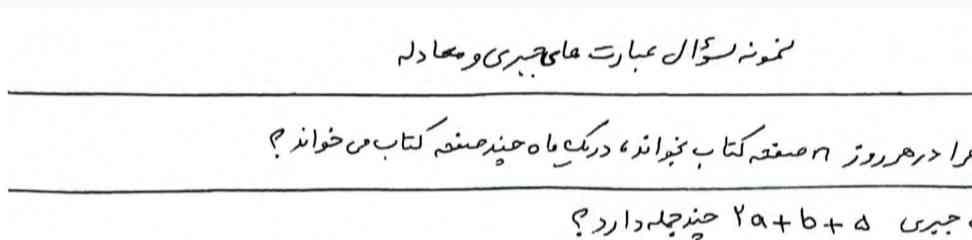 نمونه سؤال عبارت های جبری و معادله
در هر روز n صفحه کتاب بخواند، در یک ماه چند صفحه کتاب می خواند؟
جبری ۲a+b+۵ چند جمله دارد؟